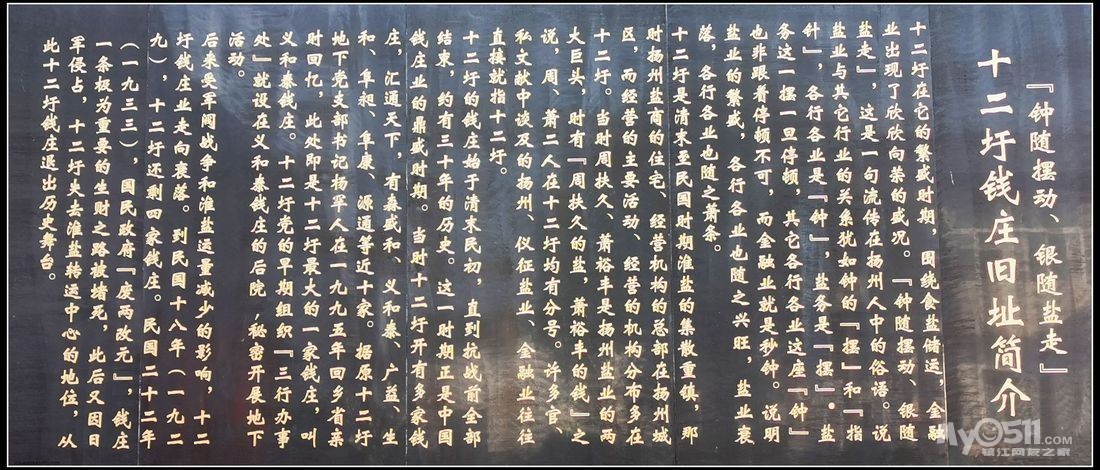 『钟随摆动、银随盐走』
十二圩钱庄旧址简介
十二圩在它的繁盛时期，围绕食盐储运，金融
业出现了欣欣向荣的盛况。『钟随摆动、银随
盐走』，这是一句流传在扬州人中的俗语。说
盐业与其它行业的关系犹如钟的『摆』和『指
针』，各行各业是『钟』，盐务是『摆』·盐
务这一摆一旦停顿，其它各行各业这座『钟』
也非跟着停顿不可，而金融业就是秒钟。说明
盐业的繁盛，各行各业也随之兴旺，盐业衰
落，各行各业也随之萧条。
十二圩是清末至民国时淮盐的集散重镇，那
时扬州盐商的住宅、经营机构的总部在扬州城
区，而经营的主要活动、经营的机构分布多在
十二圩。当时周扶久、萧裕丰是扬州盐业的两
大巨头，时有『周扶久的盐，萧裕丰的钱』之
说，周、萧二人在十二圩均有分号。许多官、
私文献中谈及的扬州、仪征盐业、金融业往往
直接就指十二圩。
十二圩的钱庄始于清末民初，直到抗战前全部
结束，约有三十年的历史。这一时期正是中国
钱庄业的鼎盛时期。当时十二圩开有多家钱
庄，汇通天下，有森盛和、义和泰、广益、生
和、阜昶、阜康、源通等近十家。据原十二圩
地下党支部书记杨平人在一九九五年回乡省亲
时回忆，此处即是十二圩最大的一家钱庄，叫
义和泰钱庄。十二圩党的早期组织『三行办事
处』就设在义和泰钱庄的后院，秘密开展地下
活动。
后来受军阀战争和淮盐运量减少的影响，十二
圩钱庄业走向衰落。到民国十八年（一九二
九），十二圩还剩四家钱庄。民国二十二年
（一九三三），国民政府『废两改元』，钱庄
一条极为重要的生财之路被堵死，此后又因日
军侵占，十二圩失去淮盐转运中心的地位，从
此十二圩钱庄退出历史舞台。
My0511.com
镇江网友之家